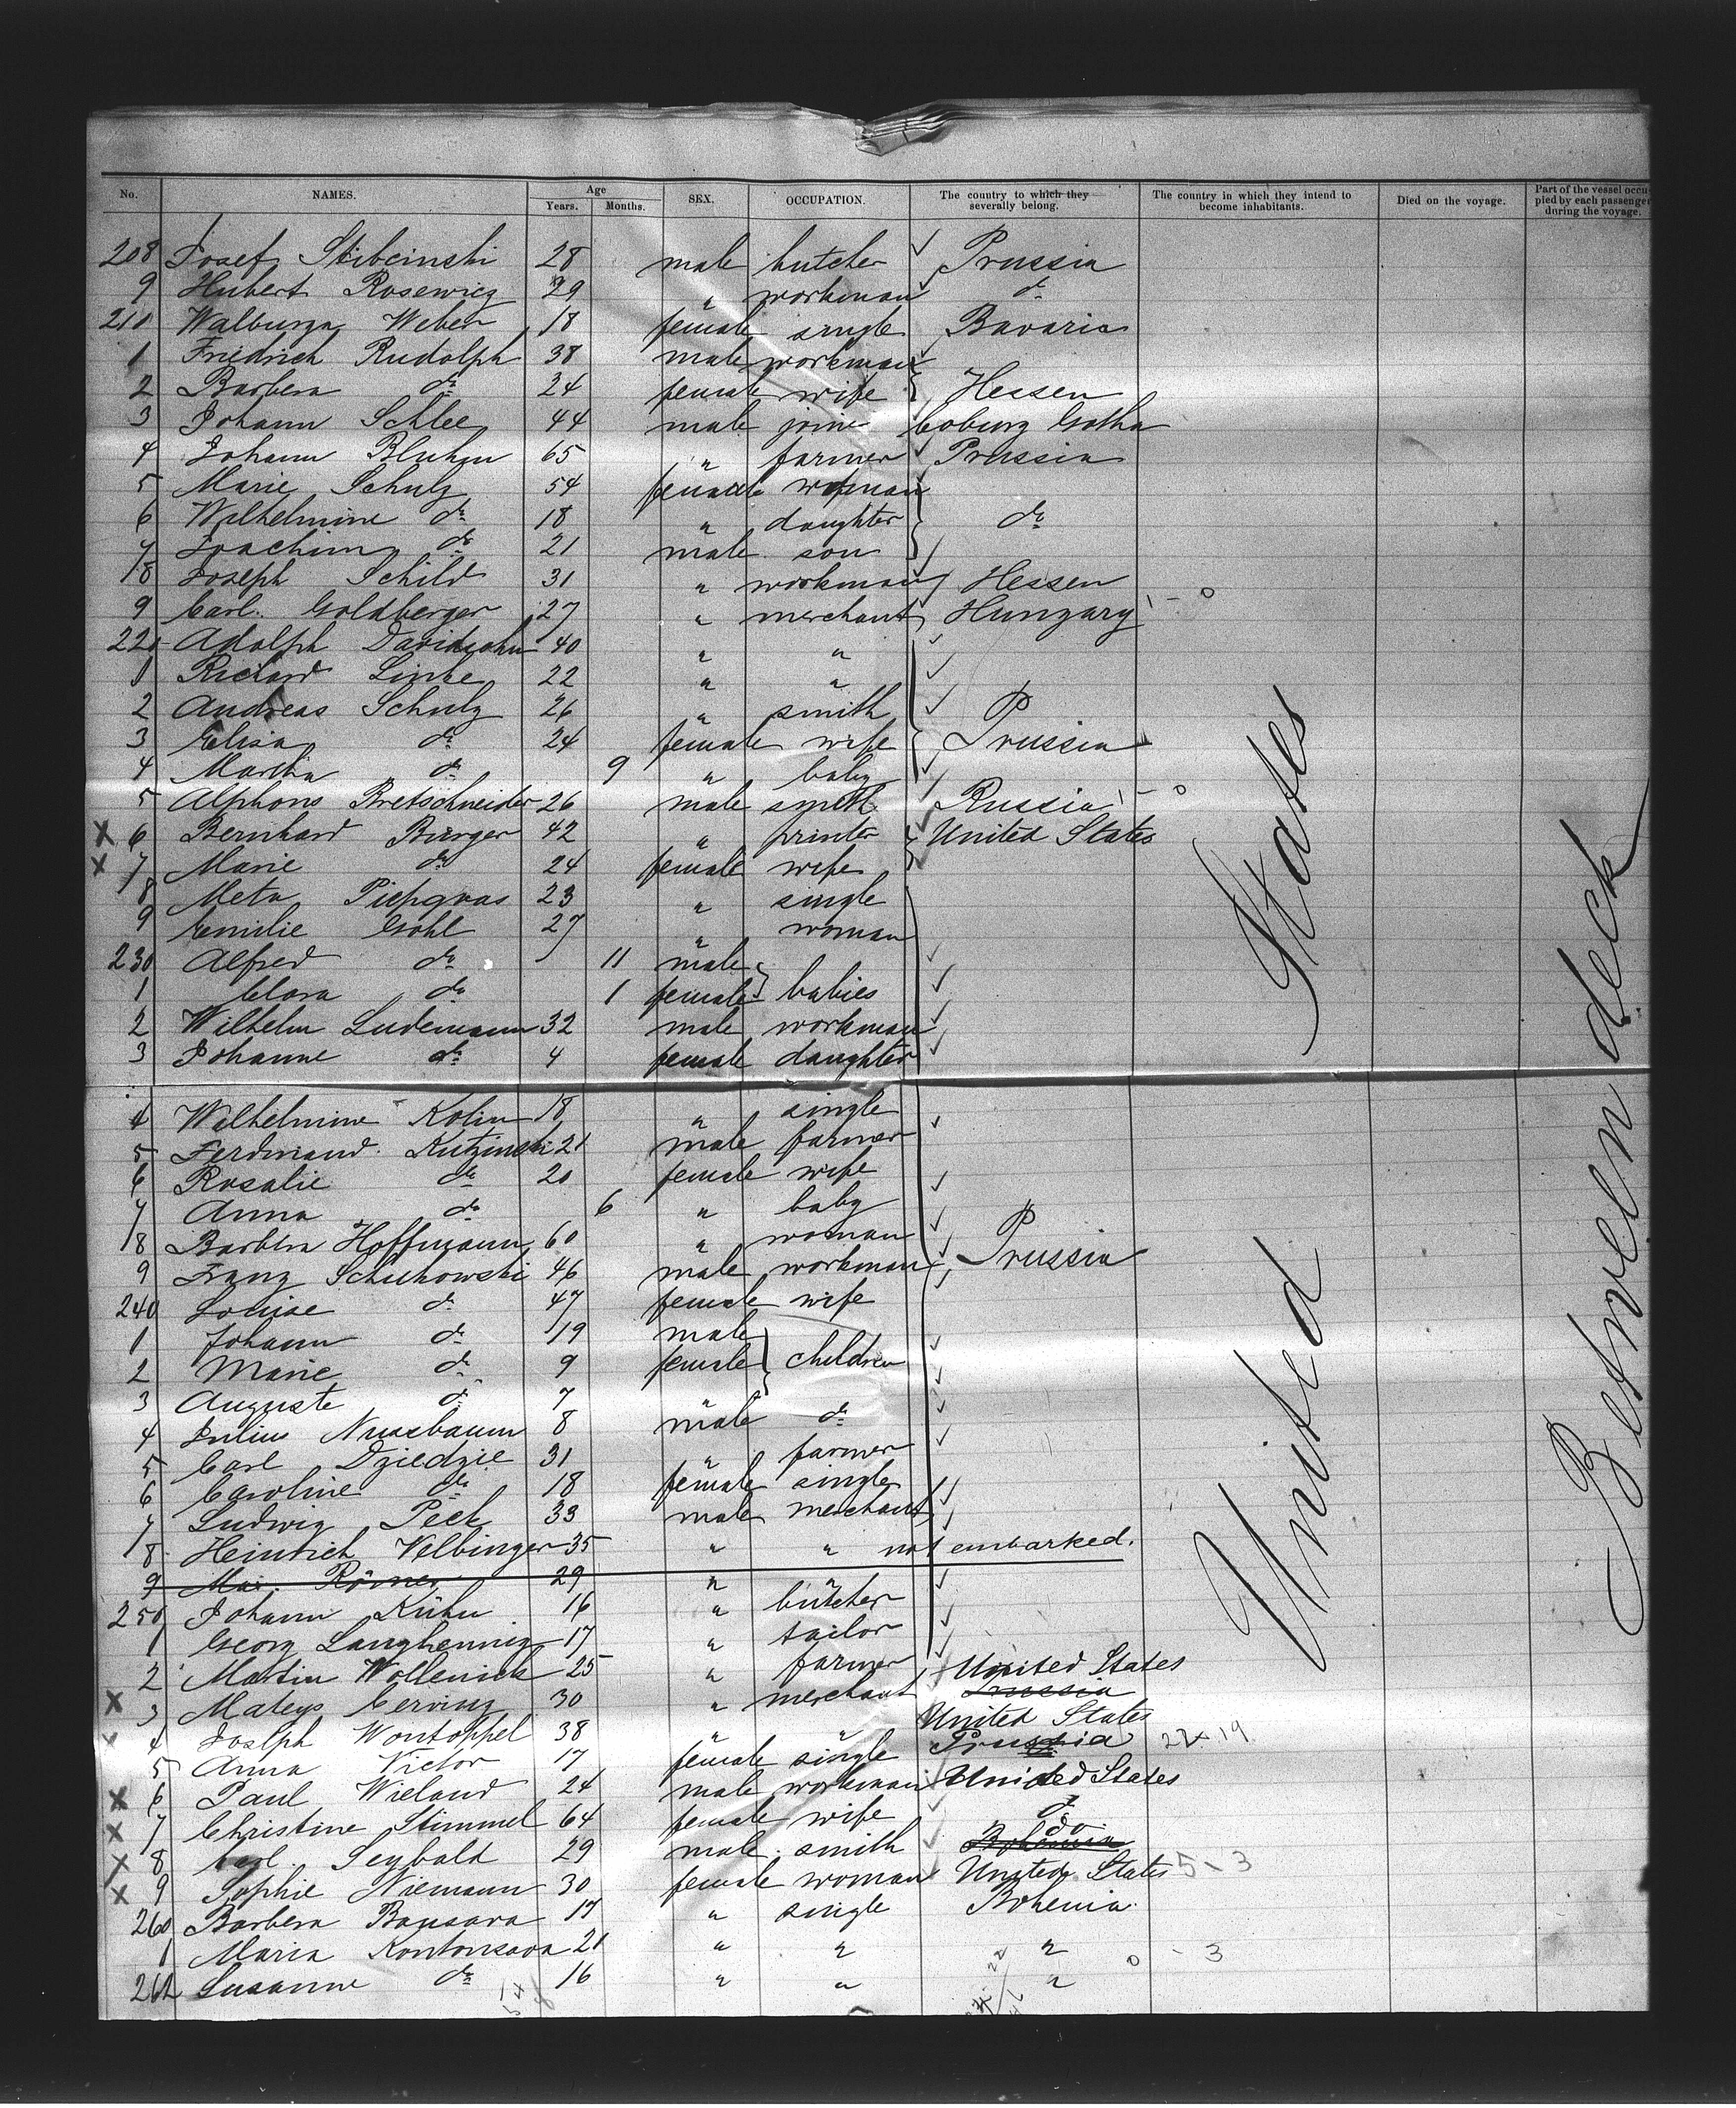 No. NAMES. Age Years. Months. SEX. OCCUPATION. The country to which they severally belong. The country in which they intend to become inhabitants. Died on the voyage. Part of the vessel occupied by each passenger during the voyage.
208 Josef Stibcinski 28 male butcher Prussia
9 Hubert Rosewicz 29 " workman do
210 Walburga Weber 18 female single Bavaria
1 Friedrich Rudolph 38 male workman
2 Barbera do 24 female wife Hessen
3 Johann Schlee 44 male joiner Coburg Gotha
4 Johann Bluhm 65 " farmer Prussia
5 Marie Schulz 54 female woman
6 Wilhelmine do 18 " daughter do
7 Joachim do 21 male son
18 Joseph Schild 31 " workman Hessen
9 Carl Goldberger 27 " merchant Hungary
220 Adolph Davidsohn 40 " "
1 Richard Linke 22 " "
2 Andreas Schulz 26 " smith
3 Elisa do 24 female wife Prussia
4 Martha do 9 " baby
5 Alphons Bretschneider 26 male smith Russia
X 6 Bernhard Bürger 42 " printer United States
X 7 Marie do 24 female wife
8 Meta Piepgras 23 " single
9 Emilie Gohl 27 " woman
230 Alfred do 11 male
1 Clara do 1 female babies
2 Wilhelm Ludemann 32 male workman
3 Johanne do 4 female daughter
4 Wilhelmine Kolin 18 " single
5 Ferdinand Kutzinski 21 male farmer
6 Rosalie do 20 female wife
7 Anna do 6 " baby
18 Barbera Hoffmann 60 " woman
9 Franz Schukowski 46 male workman Prussia
240 Louise do 47 female wife
1 Johann do 19 male
2 Marie do 9 female children
3 Auguste do 7
4 Julius Nussbaum 8 male do
5 Carl Dziedzie 31 " farmer
6 Caroline do 18 female single
7 Ludwig Peck 33 male merchant
18 Heinrich Velbinger 35 " " not embarked.
9 Max Römer 29 "
250 Johann Kühn 16 " butcher
1 Georg Langhennig 17 " tailor
2 Martin Wollenick 25 " farmer United States
X 3 Mateys Cerving 30 " merchant Prussia
United States
4 Joseph Wontoppel 38 " " Prussia
5 Anna Victor 17 female single
X 6 Paul Wieland 24 male workman United States
X 7 Christine Stimmel 64 female wife do
X 8 Carl Seybold 29 male smith Bohemia do
X 9 Sophie Niemann 30 female woman United States 5-3
260 Barbera Bansara 17 " single Bohemia
1 Maria Kontonsava 21 " " " - 3
262 Susanne do 16 " " "
United States
Between deck